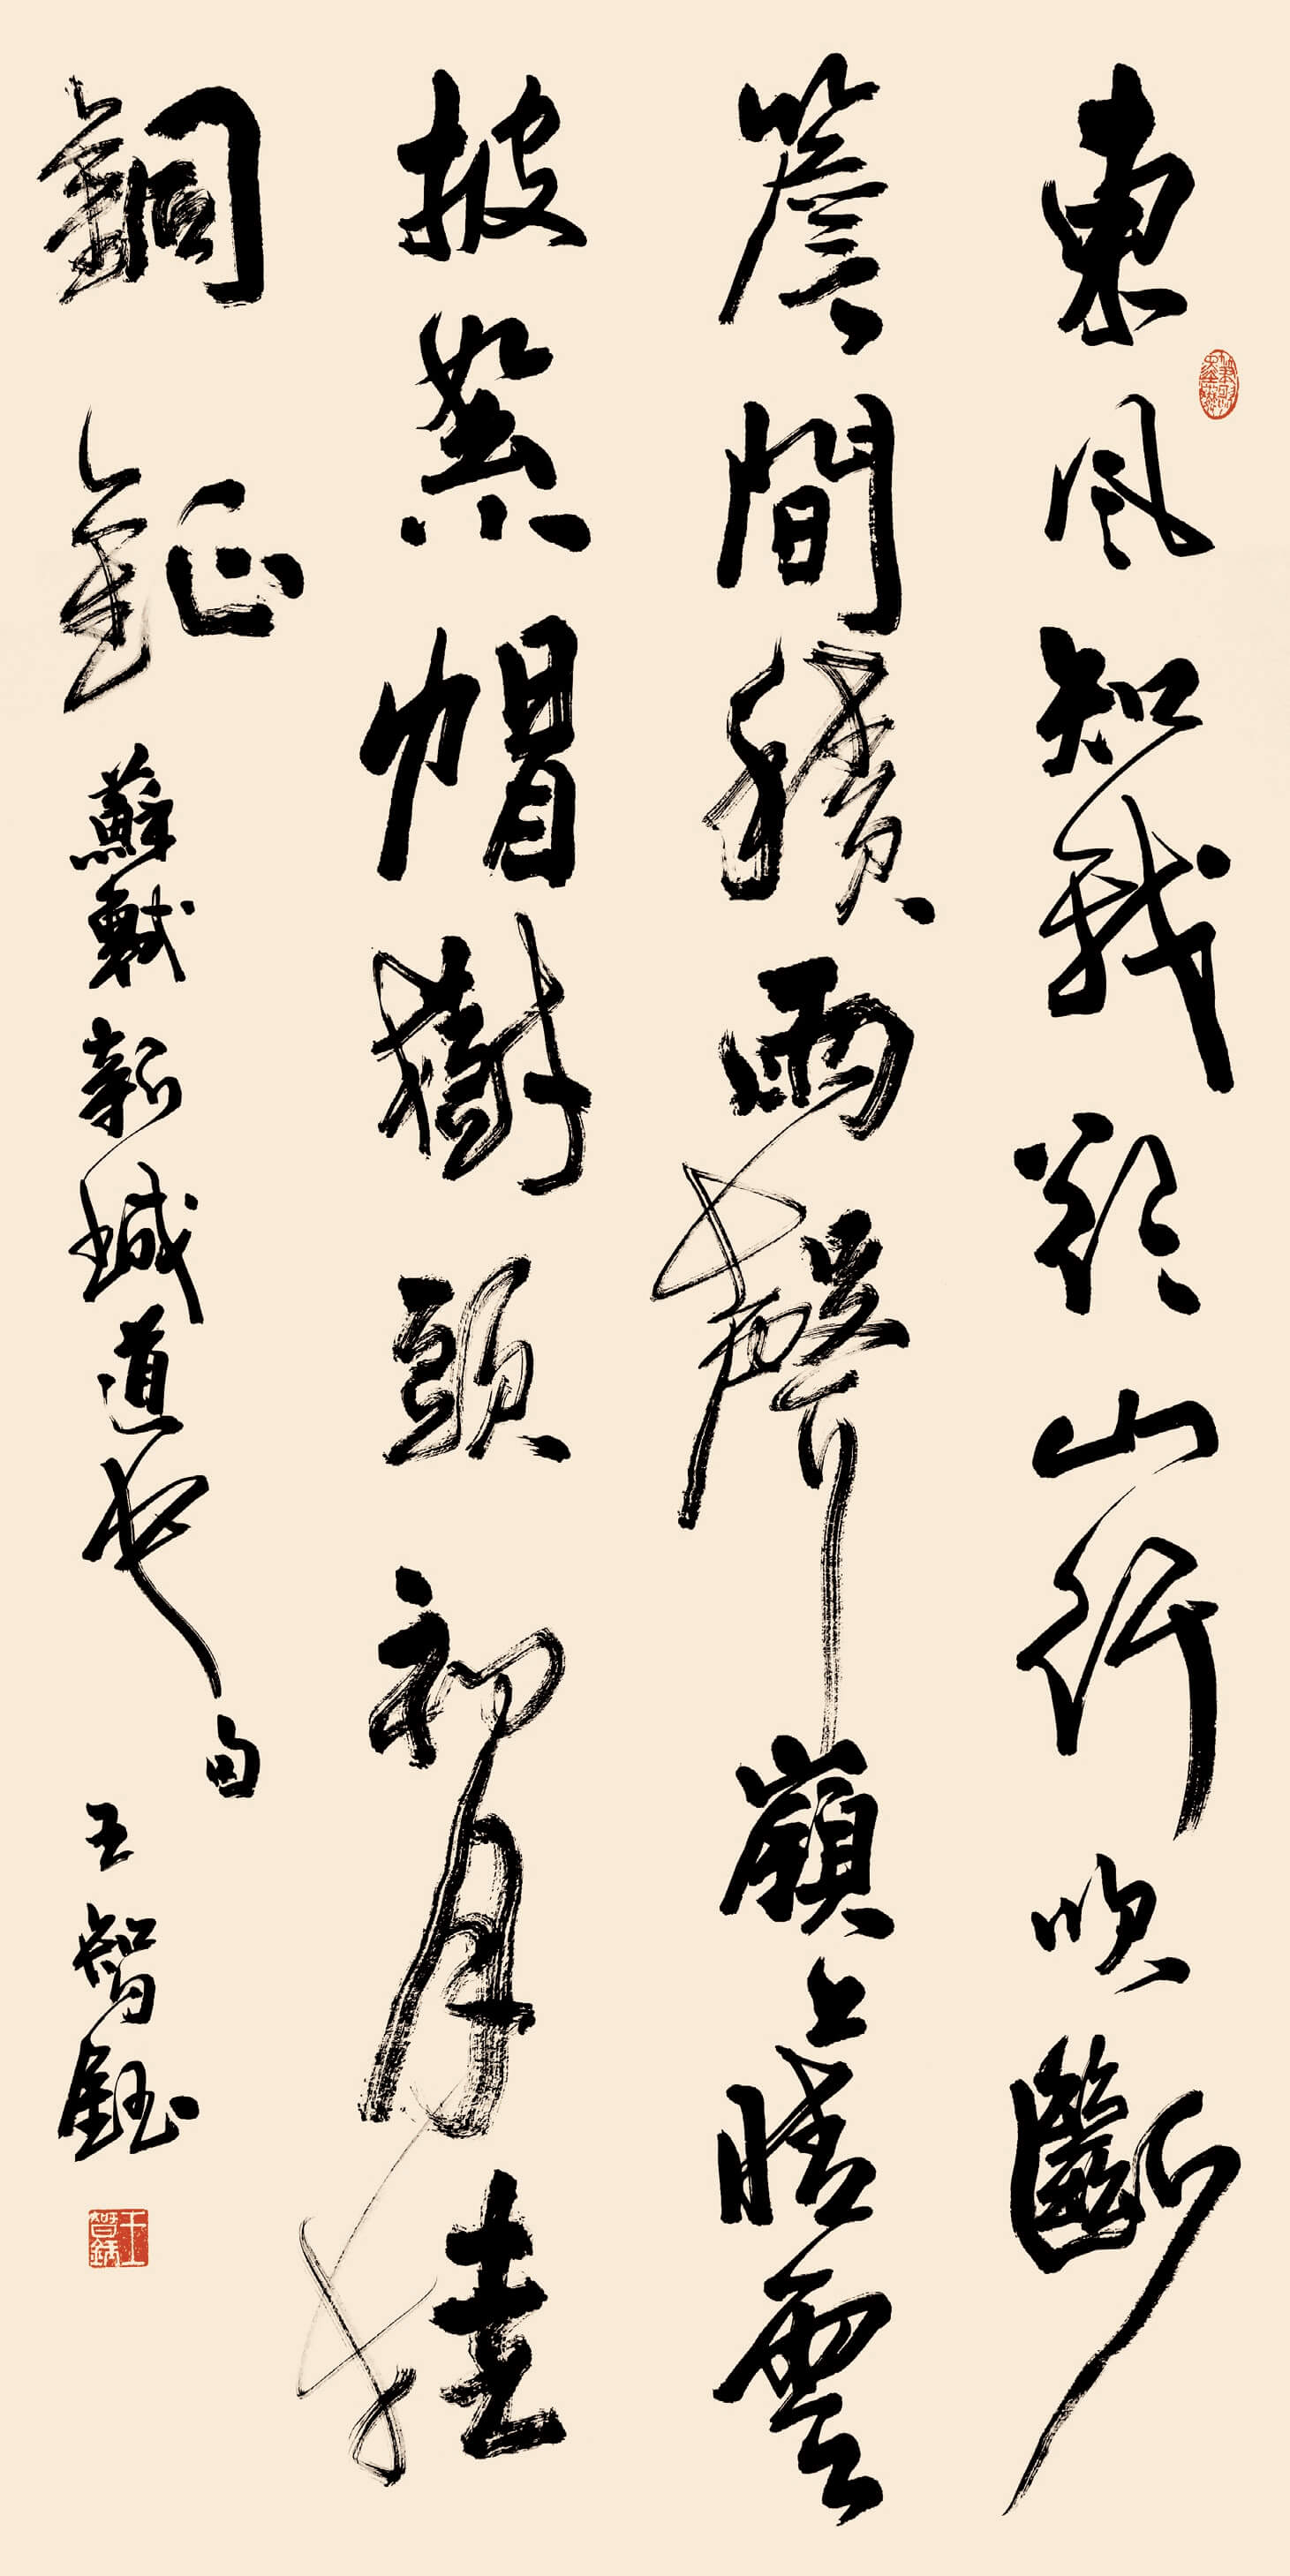 東風知我欲山行吹斷
簷間積雨聲嶺上晴雲
披絮帽樹頭初月挂
銅鉦蘇軾新城道中句
王智鈺